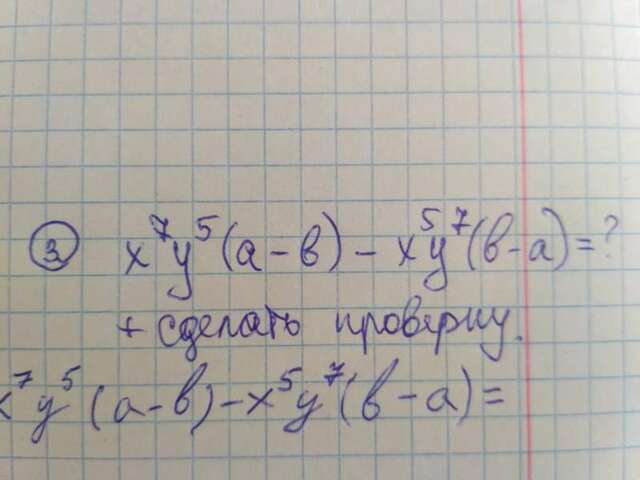 ③ x⁷y⁵(a-в) - x⁵y⁷(в-a)=?
+ сделать проверку.
x⁷y⁵(a-в)-x⁵y⁷(в-a)=